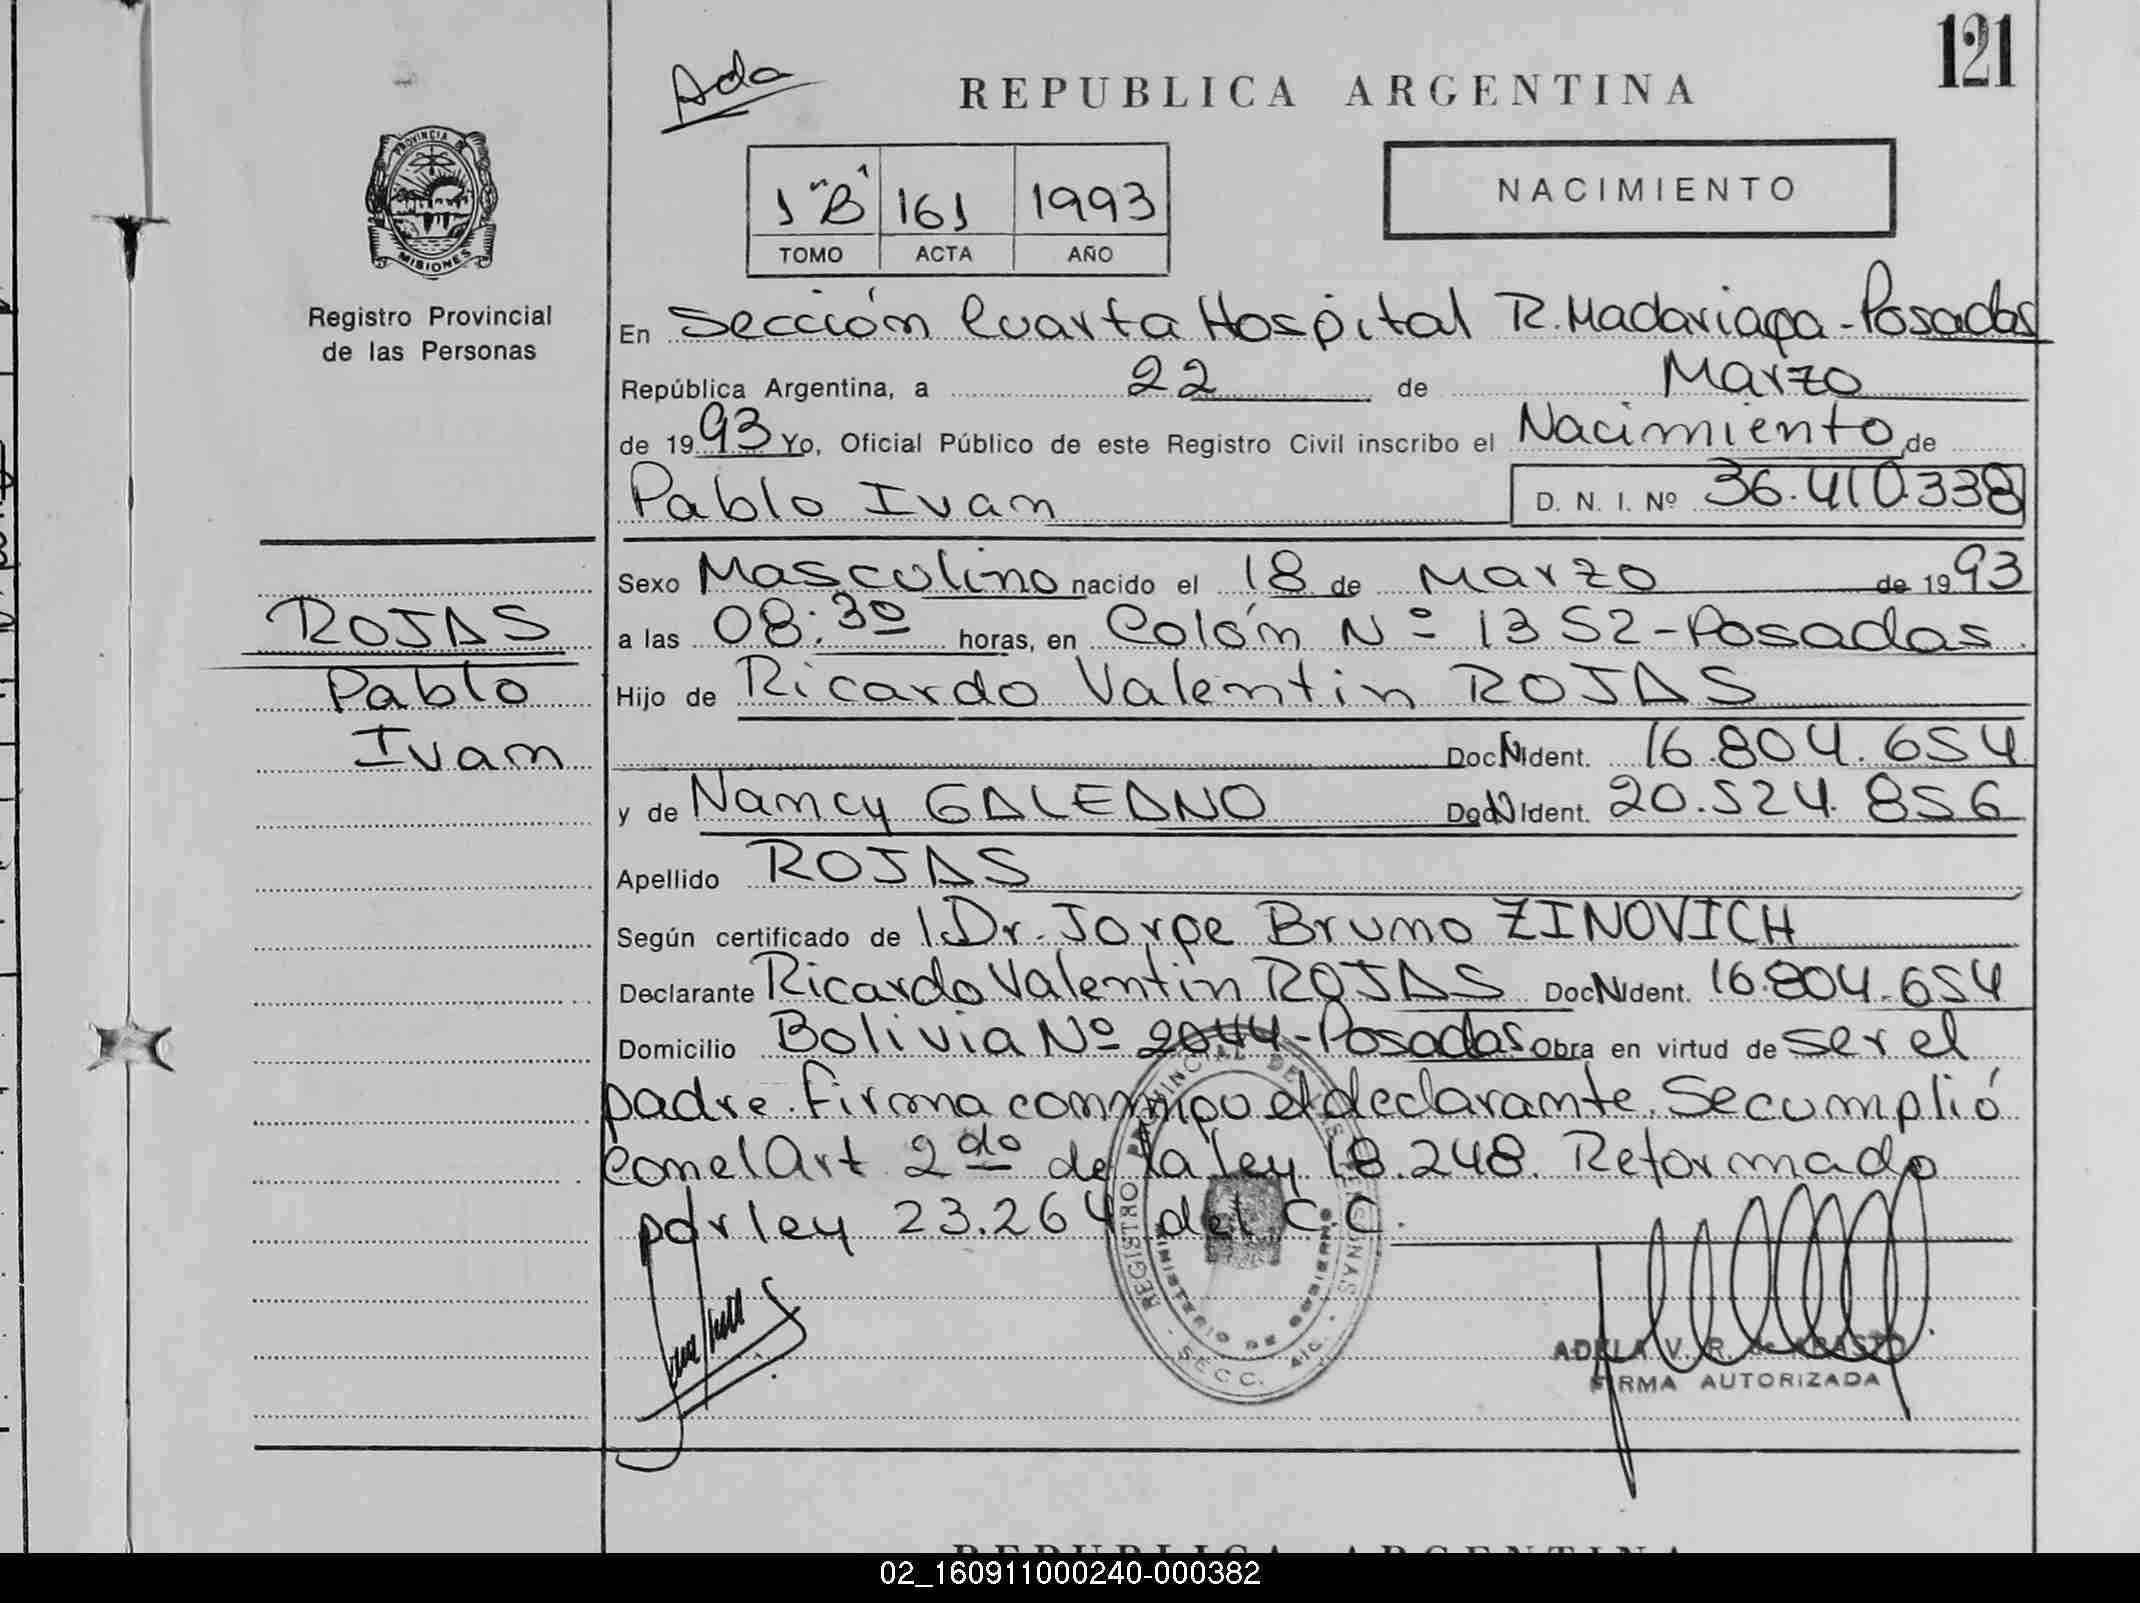 121
Ada
REPUBLICA ARGENTINA
PROVINCIA
MISIONES
Registro Provincial
de las Personas
1 "B" 161 1993
TOMO ACTA AÑO
NACIMIENTO
En Sección Cuarta Hospital R. Madariaga - Posadas
República Argentina, a 22 de Marzo
de 1993 Yo, Oficial Público de este Registro Civil inscribo el Nacimiento de
Pablo Ivan D. N. I. Nº 36.410.338
Sexo Masculino nacido el 18 de Marzo de 1993
ROJAS
a las 08:30 horas, en Colón Nº 1352 - Posadas
Pablo
Hijo de Ricardo Valentin ROJAS
Ivan
Doc N Ident. 16.804.654
y de Nancy GALEANO Doc N Ident. 20.524.856
Apellido ROJAS
Según certificado de Dr. Jorge Bruno ZINOVICH
Declarante Ricardo Valentin ROJAS Doc N Ident. 16.804.654
Domicilio Bolivia Nº 2044 - Posadas Obra en virtud de ser el
padre. Firma conmigo el declarante. Se cumplió
con el Art 2do de la ley 18.248. Reformado
por ley 23.264 del C.C.
REGISTRO PROVINCIAL DE LAS PERSONAS
MINISTERIO DE GOBIERNO
SECC.
ADELA V. R. de ABASTO
FIRMA AUTORIZADA
REPUBLICA ARGENTINA
02_160911000240-000382